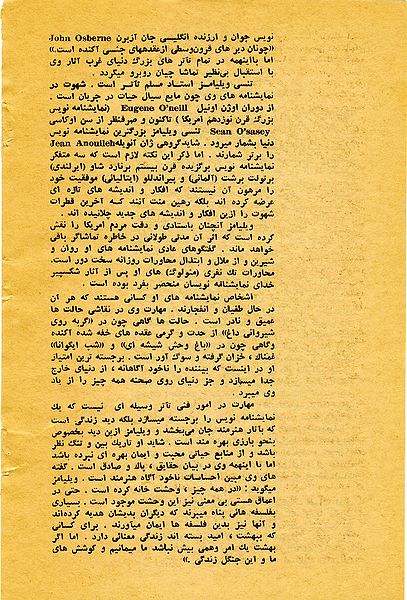 نویس جوان و ارزنده انگلیسی جان ازبرن John Osberne
«چونان دیر های قرون‌وسطی ازعقده‌های جنسی آکنده است.»
اما بااینهمه در تمام تآتر های بزرگ دنیای غرب آثار وی
با استقبال بی‌نظیر تماشا چیان روبرو میگردد .
تنسی ویلیامز استاد مسلم تآتر است . شهوت در
نمایشنامه های وی چون مایع سیال حیات در جریان است .
از دوران اوژن اونیل Eugene O'neill ( نمایشنامه نویس
بزرگ قرن نوزدهم امریکا ) تاکنون و صرفنظر از سن اوکاسی
Sean O'sasey تنسی ویلیامز بزرگترین نمایشنامه نویس
دنیا بشمار میرود . شایدگروهی ژان آنویله Jean Anouileh
را برتر شمارند . اما ذکر این نکته لازم است که سه متفکر
نمایشنامه نویس برگزیده قرن بیستم برنارد شاو (ایرلندی)
برتولت برشت (آلمانی) و پیراندللو (ایتالیائی) موفقیت خود
را مرهون آن نیستند که افکار و اندیشه های تازه ای
عرضه کرده اند بلکه رهین منت آنند کسه آخرین قطرات
شهوت را ازین افکار و اندیشه های جدید چلانیده اند .
ویلیامز آنچنان باستادی و دقت مردم امریکا را نقش
کرده است که اثر آن مدتی طولانی در خاطره تماشاگر باقی
خواهد ماند . گفتگوهای عادی نمایشنامه های او روان و
شیرین و از ملال و ابتذال محاورات روزانه سخت دور است.
محاورات تك نفری (منولوگ) های او پس از آثار شکسپیر
خدای نمایشنافه نویسان منحصر بفرد بوده است .
اشخاص نمایشنامه های او کسانی هستند که هر آن
در حال طغیان و انفجارند . مهارت وی در نقاشی حالت ها
عمیق و نادر است . حالت ها گاهی چون در «گربه روی
شیروانی داغ» از حدت و گرمی عقده های خفه شده آکنده
وگاهی چون در «باغ وحش شیشه ای» و «شب ایگوانا»
غمناك ، خزان گرفته و سوگ آور است . برجسته ترین امتیاز
او در اینست که بیننده را ناخود آگاهانه ، از دنیای خارج
جدا میسازد و جز دنیای روی صحنه همه چیز را از یاد
وی میبرد .
مهارت در امور فنی تآتر وسیله ای نیست که یك
نمایشنامه نویس را برجسته میسازد بلکه دید زندگی است
که بآثار هنرمند جان می‌بخشد و ویلیامز ازین دید بخصوص
بنحو بارزی بهره مند است . شاید او تاریك بین و تنگ نظر
باشد و از منابع حیاتی محبت و ایمان بهره ای نبرده باشد
اما با اینهمه وی در بیان حقایق ، پاك و صادق است . گفته
های وی مبین احساسات ناخود آگاه هنرمند است . ویلیامز
میگوید : «در همه چیز ، وحشت خانه کرده است . حتی در
اعماق هستی بی معنی نیز این وحشت موجود است . بسیاری
بفلسفه هائی پناه میبرند که دیگران بدیشان هدیه کرده‌اند
و آنها نیز بدین فلسفه ها ایمان میآورند . برای کسانی
که ببهشت ، امید بسته اند زندگی معنائی دارد . اما اگر
بهشت یك امر وهمی بیش نباشد ما میمانیم و کوشش های
ما و این جنگل زندگی .»